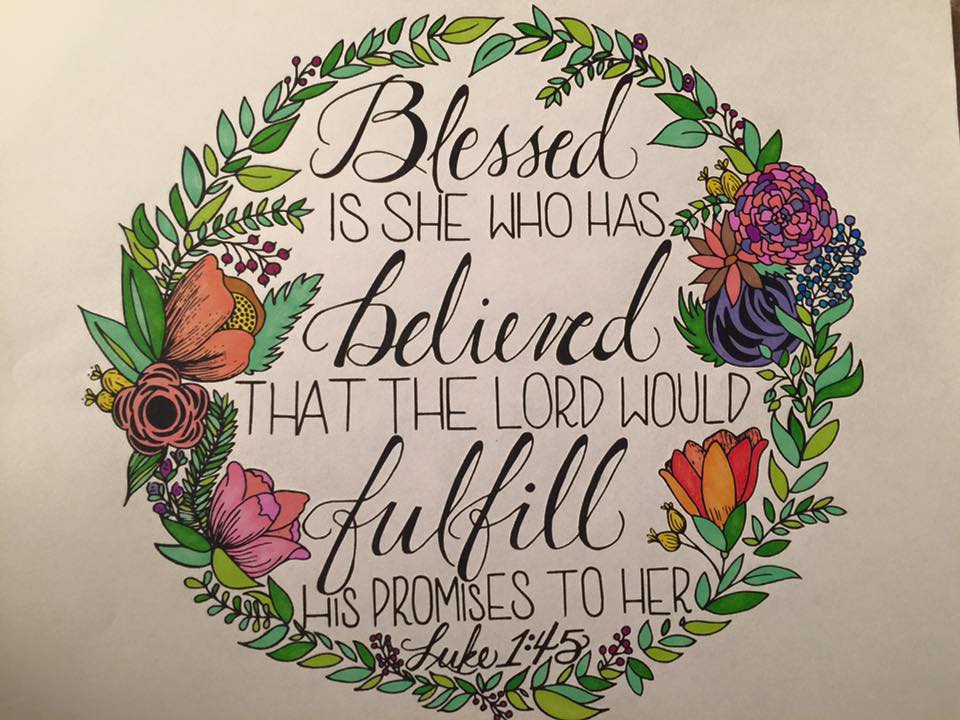 Blessed
IS SHE WHO HAS
believed
THAT THE LORD WOULD
fulfill
HIS PROMISES TO HER
Luke 1:45